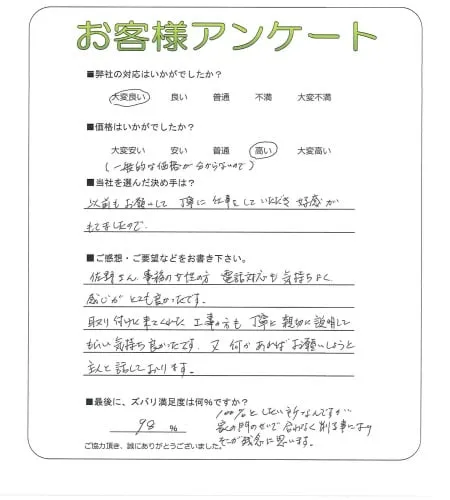 お客様アンケート
■弊社の対応はいかがでしたか？
大変良い 良い 普通 不満 大変不満
■価格はいかがでしたか？
大変安い 安い 普通 高い 大変高い
(一般的な価格が分からないので)
■当社を選んだ決め手は？
以前もお願いして 丁寧に仕事をしていただき 好感が
もてましたので.
■ご感想・ご要望などをお書き下さい。
佐野さん、事務の女性の方 電話対応も気持ちよく
感じがとても良かったです。
取り付けに来てくれた 工事の方も 丁寧に親切に説明して
もらい気持ち良かったです。又 何かあればお願いしようと
主人と話しております。
■最後に、ズバリ満足度は何％ですか？
98 ％
100%としたい所なんですが
家の門のせいで合わなく削る事になり
そこが残念に思います。
ご協力頂き、誠にありがとうございました。